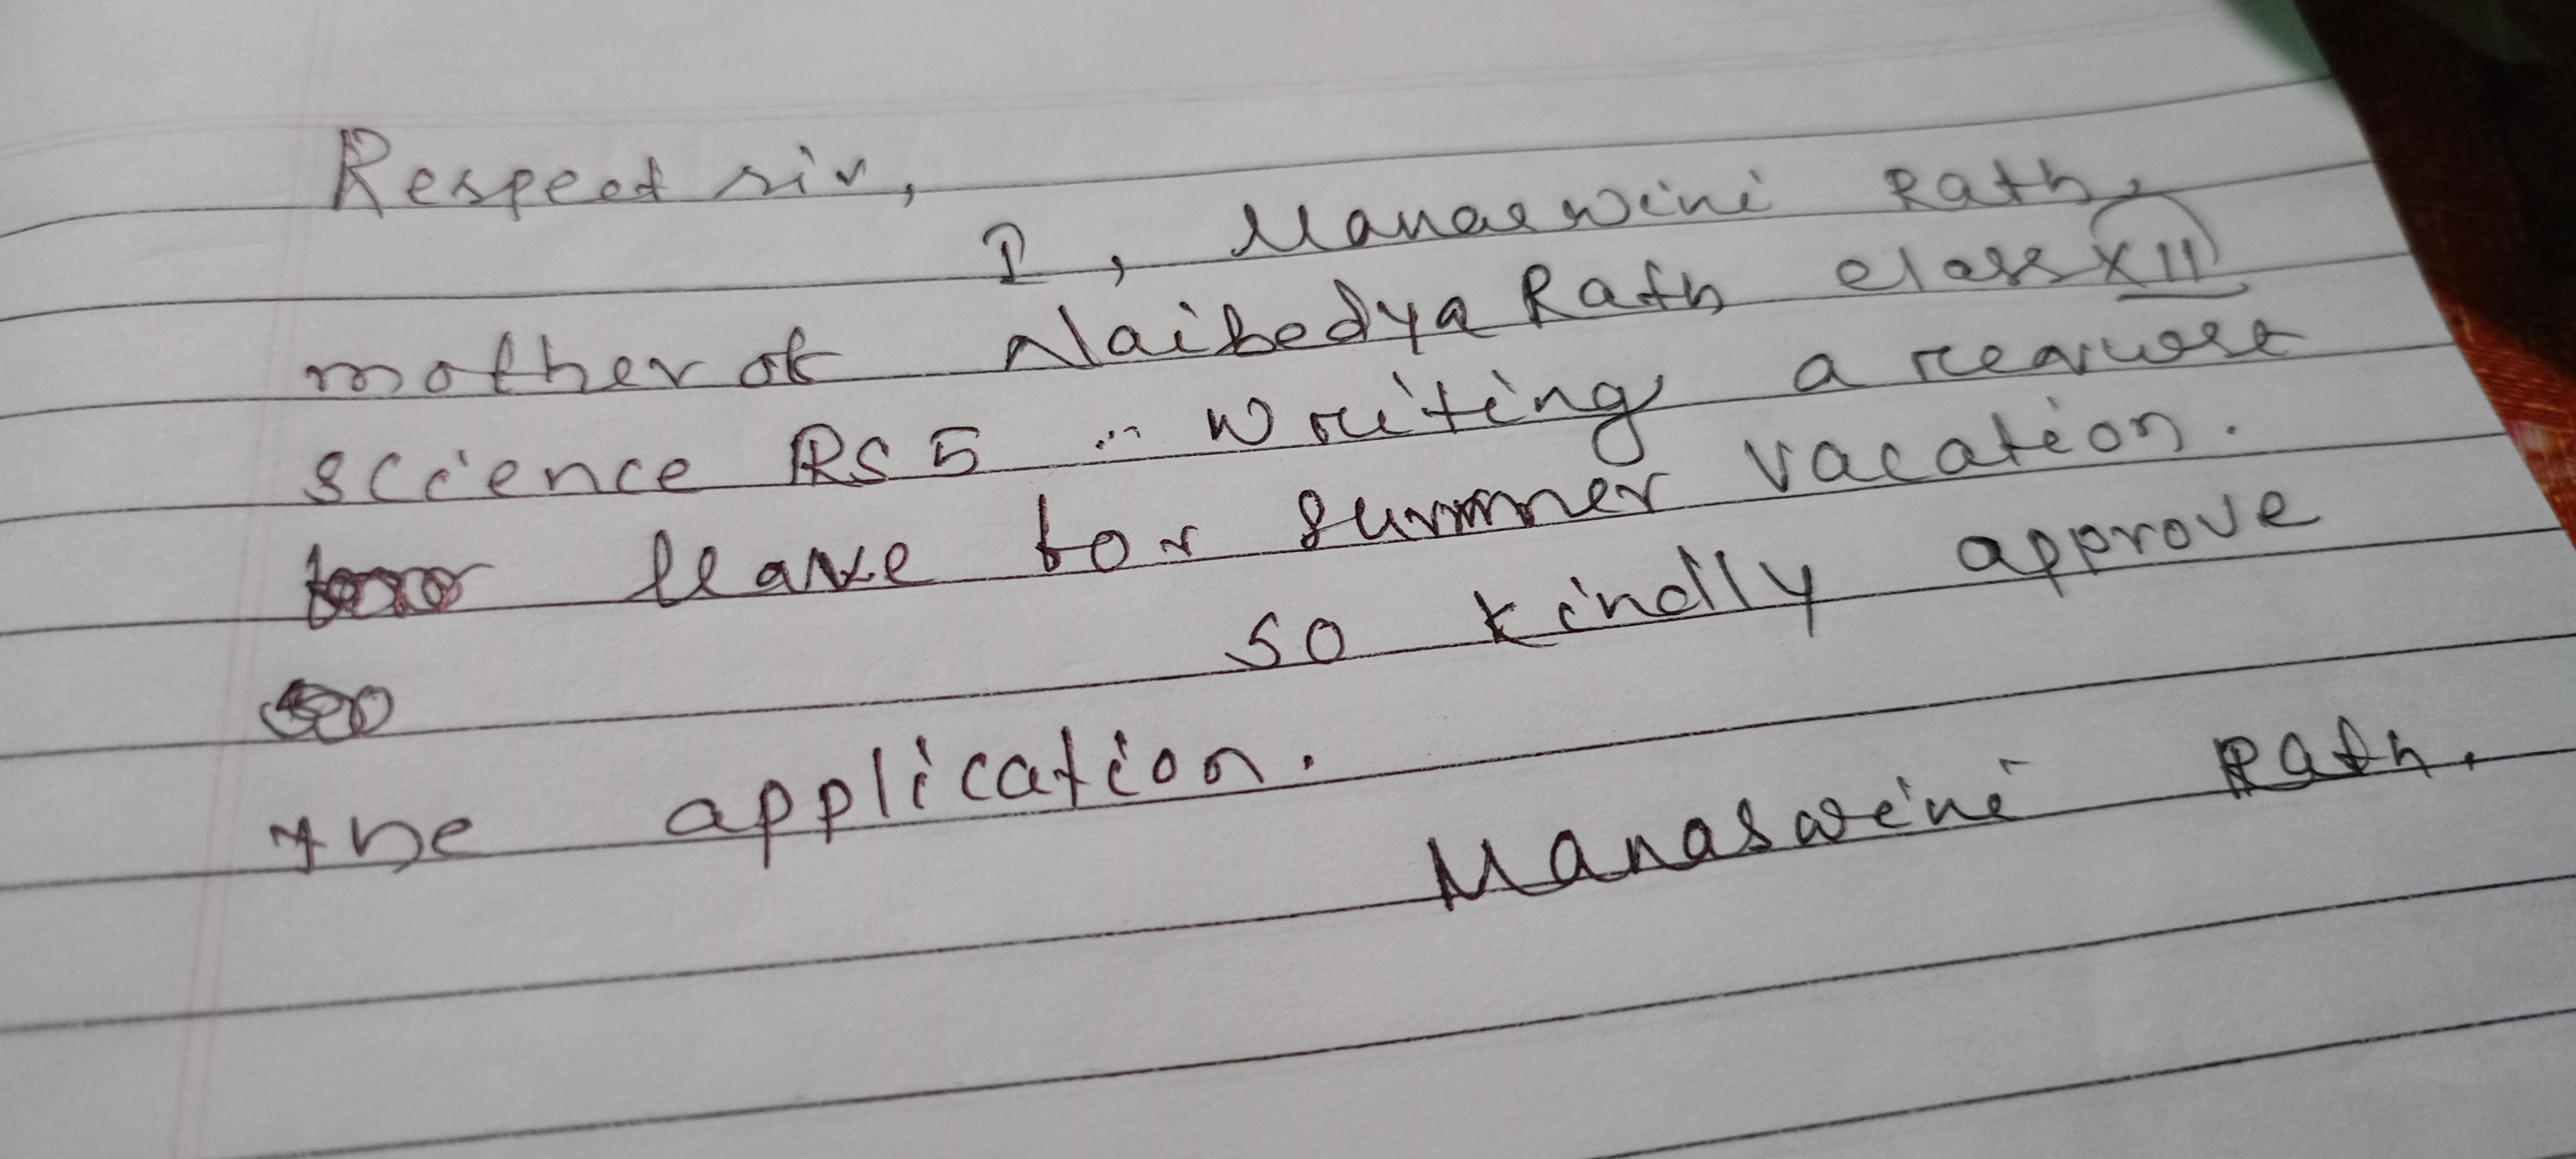 Respect sir,
I, Manaswini Rath,
mother of Naibedya Rath class XII
science RS5 ... Writing a request
leave for summer vacation.
so kindly approve
the application.
Manaswini Rath.